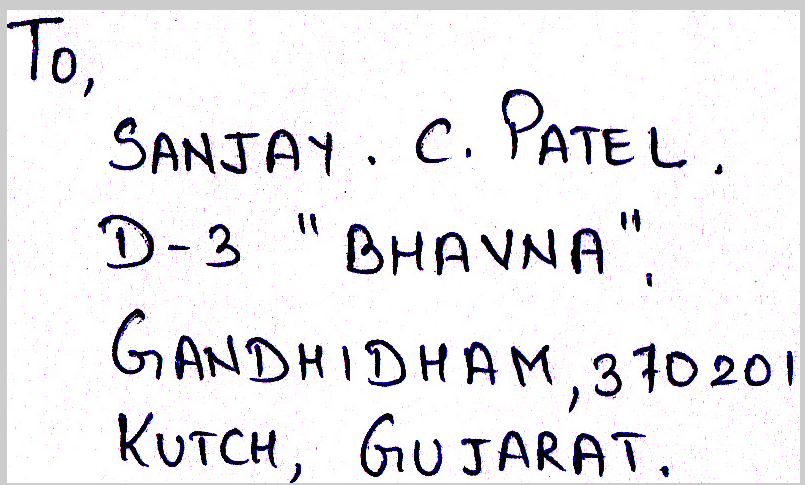 To,
SANJAY. C. PATEL.
D-3 "BHAVNA".
GANDHIDHAM, 370201
KUTCH, GUJARAT.